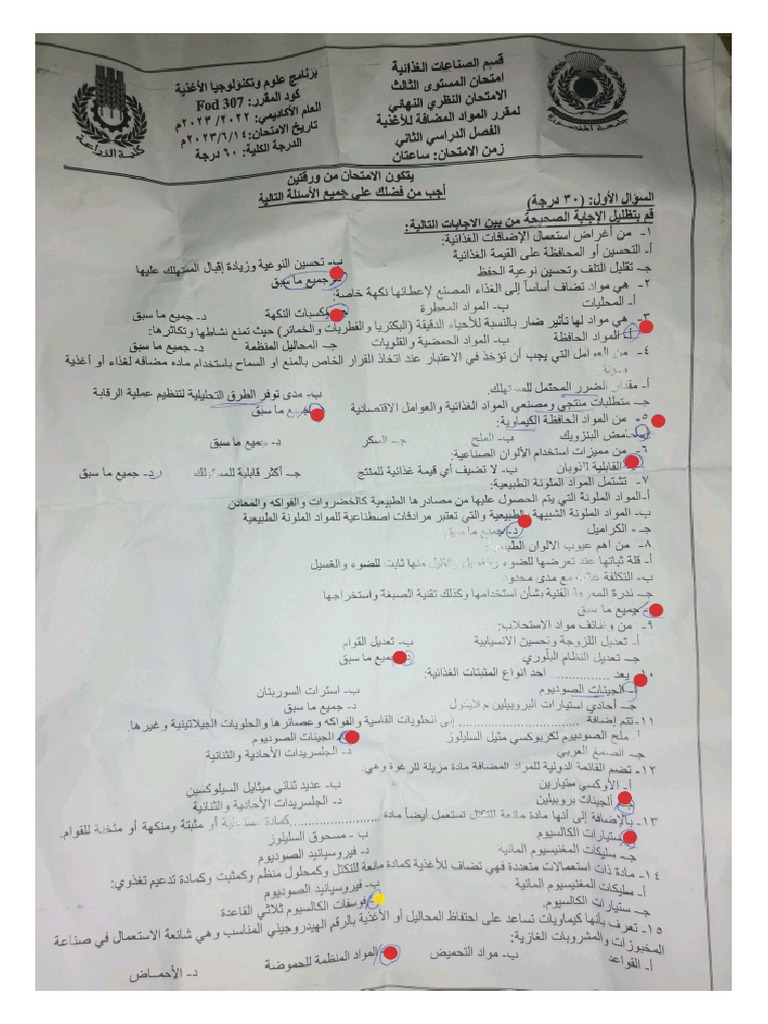 قسم الصناعات الغذائية
امتحان المستوى الثالث
الامتحان النظري النهائي
لمقرر المواد المضافة للأغذية
الفصل الدراسي الثاني
زمن الامتحان: ساعتان
برنامج علوم وتكنولوجيا الأغذية
كود المقرر: Fod 307
العام الأكاديمي: ٢٠٢٢/ ٢٠٢٣م
تاريخ الامتحان: ٢٠٢٣/٦/١٤م
الدرجة الكلية: ٦٠ درجة
كلية الزراعة
يتكون الامتحان من ورقتين
أجب من فضلك على جميع الأسئلة التالية
السؤال الأول: (٣٠ درجة)
قم بتظليل الإجابة الصحيحة من بين الاجابات التالية:
١- من أغراض استعمال الإضافات الغذائية:
أ- التحسين أو المحافظة على القيمة الغذائية ب- تحسين النوعية وزيادة إقبال المستهلك عليها
جـ- تقليل التلف وتحسين نوعية الحفظ جميع ما سبق
٢- هي مواد تضاف أساساً إلى الغذاء المصنع لإعطائها نكهة خاصة:
أ- المحليات ب- المواد المعطرة مكسبات النكهة د- جميع ما سبق
٣- هي مواد لها تأثير ضار بالنسبة للأحياء الدقيقة (البكتريا والفطريات والخمائر) حيث تمنع نشاطها وتكاثرها:
أ- المواد الحافظة ب- المواد الحمضية والقلويات جـ- المحاليل المنظمة د- جميع ما سبق
٤- من العوامل التي يجب أن تؤخذ في الاعتبار عند اتخاذ القرار الخاص بالمنع او السماح باستخدام ماده مضافه لغذاء أو أغذية
أ- مقدار الضرر المحتمل للمستهلك. ب- مدى توفر الطرق التحليلية لتنظيم عملية الرقابة
جـ- متطلبات منتجي ومصنعي المواد الغذائية والعوامل الاقتصادية جميع ما سبق
٥- من المواد الحافظة الكيماوية:
حمض البنزويك ب- الملح جـ- السكر د- جميع ما سبق
٦- من مميزات استخدام الألوان الصناعية:
القابلية للذوبان ب- لا تضيف أي قيمة غذائية للمنتج جـ- أكثر قابلية للمستهلك د- جميع ما سبق
٧- تشتمل المواد الملونة الطبيعية:
أ- المواد الملونة التي يتم الحصول عليها من مصادرها الطبيعية كالخضروات والفواكه والمعادن
ب- المواد الملونة الشبيهة بالطبيعية والتي تعتبر مرادفات اصطناعية للمواد الملونة الطبيعية
جـ- الكراميل د- جميع ما سبق
٨- من اهم عيوب الالوان الطبيعية:
أ- قلة ثباتها عند تعرضها للضوء والقليل منها ثابت للضوء والغسيل
ب- التكلفة مع مدى محدود
جـ- ندرة المعرفة الفنية بشأن استخدامها وكذلك تقنية الصبغة واستخراجها
جميع ما سبق
٩- من وظائف مواد الاستحلاب:
أ- تعديل اللزوجة وتحسين الانسيابية ب- تعديل القوام
جـ- تعديل النظام البلوري د- جميع ما سبق
١٠- يعد ............... احد انواع المثبتات الغذائية:
أ- الجينات الصوديوم ب- استرات السوربتان
جـ- أحادي استيارات البروبيلين جلايكول د- جميع ما سبق
١١- تتم إضافة .................. إلى الحلويات القاسية والفواكه وعصائرها والحلويات الجيلاتينية وغيرها.
أ- ملح الصوديوم لكربوكسي مثيل السليلوز الجينات الصوديوم
جـ- الصمغ العربي د- الجلسريدات الأحادية والثنائية
١٢- تضم القائمة الدولية للمواد المضافة مادة مزيلة للرغوة وهي:
أ- الأوكسي ستيارين ب- عديد ثنائي ميثايل السيلوكسين
الجينات بروبيلين د- الجلسريدات الأحادية والثنائية
١٣- بالإضافة إلى أنها مادة مانعة التكتل تستعمل أيضاً ماده .....................كمادة أو مثبتة ومنكهة أو مثخنة للقوام.
ستيارات الكالسيوم ب - مسحوق السليلوز
جـ- سليكات المغنيسيوم المائية د- فيروسيانيد الصوديوم
١٤- مادة ذات استعمالات متعددة فهي تضاف للأغذية كمادة مانعة للتكتل وكمحلول منظم وكمثبت وكمادة تدعيم تغذوي:
أ- سليكات المغنيسيوم المائية ب- فيروسيانيد الصوديوم
جـ- ستيارات الكالسيوم. فوسفات الكالسيوم ثلاثي القاعدة
١٥- تعرف بأنها كيماويات تساعد على احتفاظ المحاليل أو الأغذية بالرقم الهيدروجيني المناسب وهي شائعة الاستعمال في صناعة
المخبوزات والمشروبات الغازية:
أ- القواعد ب- مواد التحميض المواد المنظمة للحموضة د- الأحماض